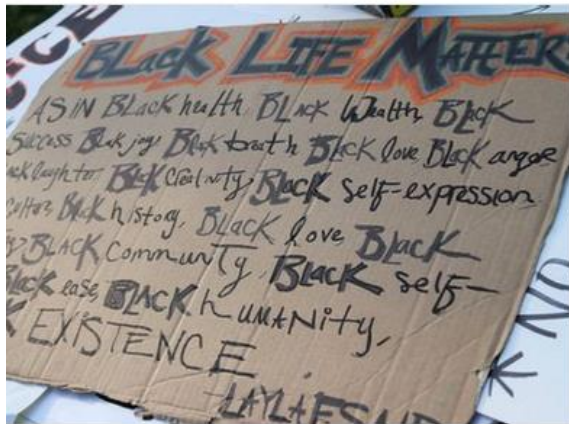 BLACK LIFE MATTER
AS IN BLACK health, BLACK Wealth, BLACK
Success Black joy, Black breath Black love, Black anger
laughter, BLACK Creativity, BLACK self-expression
BLACK history, BLACK love, BLACK
BLACK Community, BLACK self-
BLACK ease, BLACK HUMANITY,
EXISTENCE
NO